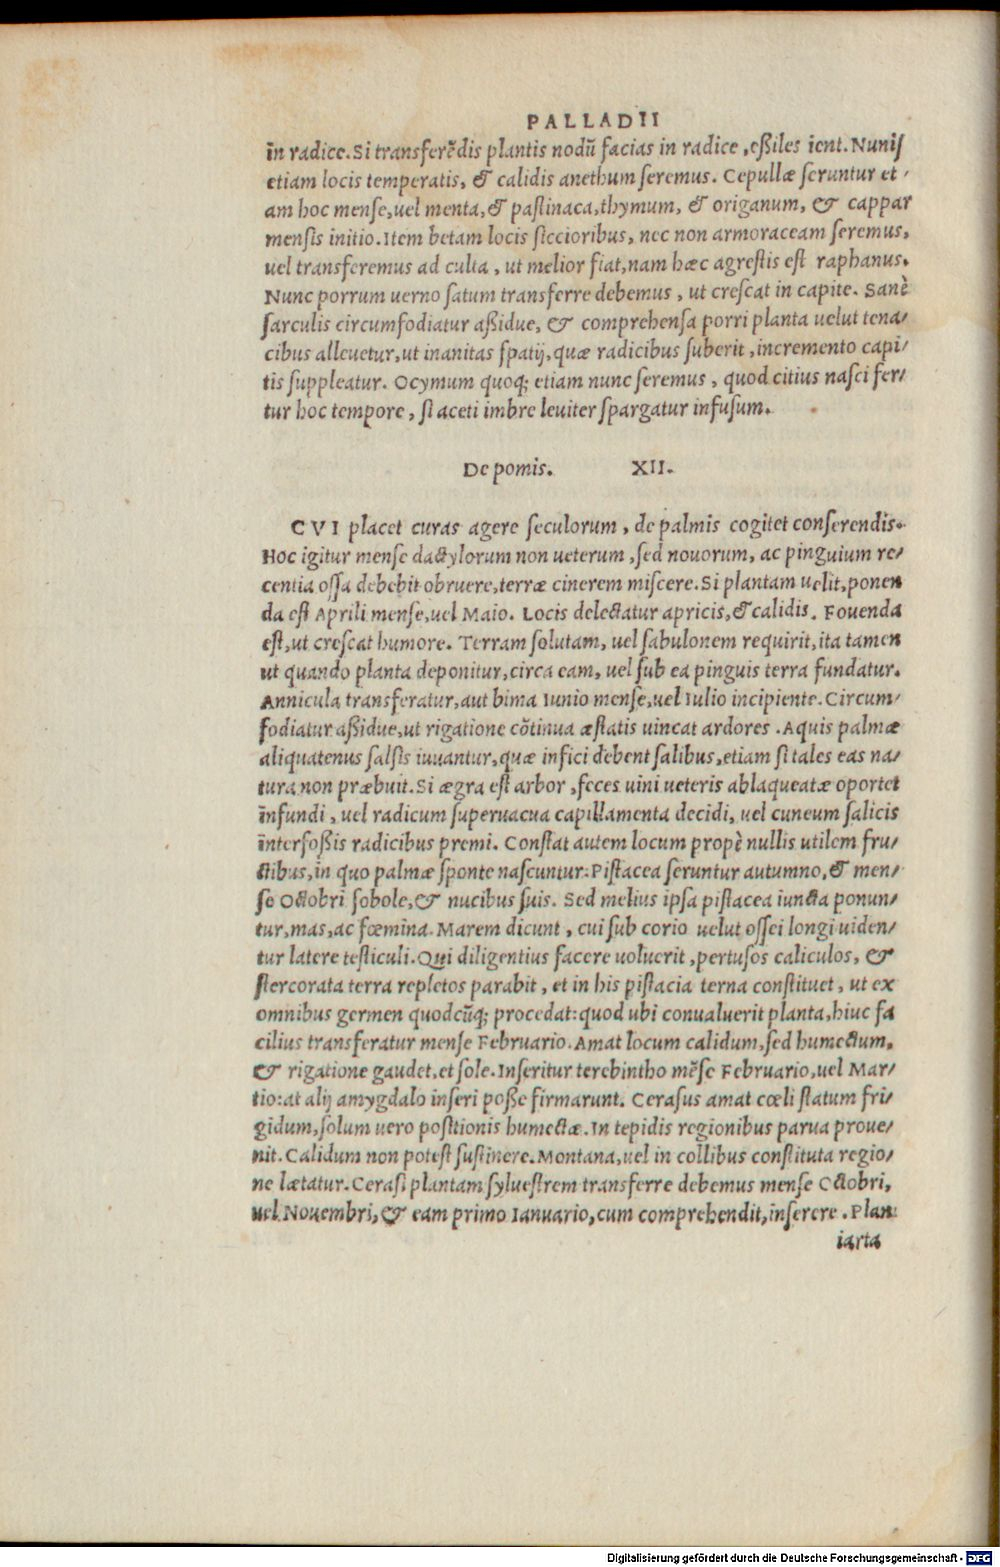 PALLADII
in radice. Si transferēdis plantis nodū facias in radice, eßiles ient. Nunis
etiam locis temperatis, & calidis anethum seremus. Cepullæ seruntur et /
am hoc mense, uel menta, & pastinaca, thymum, & origanum, & cappar
mensis initio. Item betam locis siccioribus, nec non armoraceam seremus,
uel transferemus ad culta, ut melior fiat, nam hæc agrestis est raphanus.
Nunc porrum uerno satum transferre debemus, ut crescat in capite. Sanè
sarculis circumfodiatur aßidue, & comprehensa porri planta uelut tena/
cibus alleuetur, ut inanitas spatij, quæ radicibus suberit, incremento capi/
tis suppleatur. Ocymum quoq; etiam nunc seremus, quod citius nasci fer/
tur hoc tempore, si aceti imbre leuiter spargatur infusum.
De pomis. XII.
CVI placet curas agere seculorum, de palmis cogitet conserendis.
Hoc igitur mense dactylorum non ueterum, sed nouorum, ac pinguium re/
centia ossa debebit obruere, terræ cinerem miscere. Si plantam uelit, ponen
da est Aprili mense, uel Maio. Locis delectatur apricis, & calidis. Fouenda
est, ut crescat humore. Terram solutam, uel sabulonem requirit, ita tamen
ut quando planta deponitur, circa eam, uel sub ea pinguis terra fundatur.
Annicula transferatur, aut bima Iunio mense, uel Iulio incipiente. Circum/
fodiatur aßidue, ut rigatione cōtinua æstatis uincat ardores. Aquis palmæ
aliquatenus salsis iuuantur, quæ infici debent salibus, etiam si tales eas na/
tura non præbuit. Si ægra est arbor, feces uini ueteris ablaqueatæ oportet
infundi, uel radicum superuacua capillamenta decidi, uel cuneum salicis
intersoßis radicibus premi. Constat autem locum propè nullis utilem fru/
ctibus, in quo palmæ sponte nascuntur: Pistacea seruntur autumno, & men/
se Octobri sobole, & nucibus suis. Sed melius ipsa pistacea iuncta ponun/
tur, mas, ac fœmina. Marem dicunt, cui sub corio uelut ossei longi uiden/
tur latere testiculi. Qui diligentius facere uoluerit, pertusos caliculos, &
stercorata terra repletos parabit, et in his pistacia terna constituet, ut ex
omnibus germen quodcūq; procedat: quod ubi conualuerit planta, hiuc fa
cilius transferatur mense Februario. Amat locum calidum, sed humectum,
& rigatione gaudet, et sole. Inseritur terebintho mēse Februario, uel Mar/
tio: at alij amygdalo inseri poße firmarunt. Cerasus amat cœli statum fri/
gidum, solum uero positionis humectæ. In tepidis regionibus parua proue/
nit. Calidum non potest sustinere. Montana, uel in collibus constituta regio/
ne lætatur. Cerasi plantam syluestrem transferre debemus mense Octobri,
uel Nouembri, & eam primo Ianuario, cum comprehendit, inserere. Plan
iarta
Digitalisierung gefördert durch die Deutsche Forschungsgemeinschaft - DFG